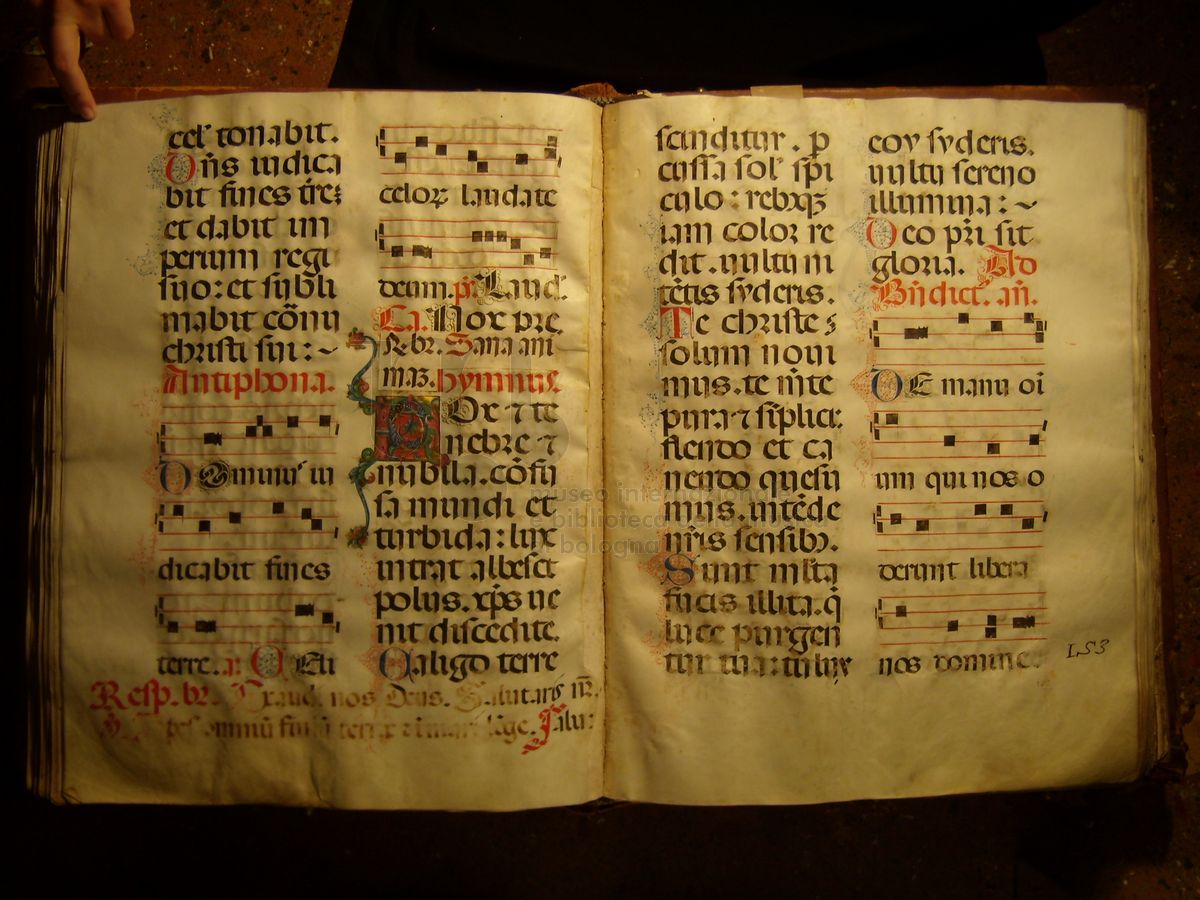 cel᷒ tonabit.
Dñs iudica
bit fines tr̃e:
et dabit im
perium regi
suo: et subli
mabit cõnu
christi sui: ~
Antiphona.
Dominus iu
dicabit fines
terre.
celoꝝ laudate
deum. ps. Laud.
Ca. Nox pre.
R. br. Sana ani
maz. hymnus
Nox ⁊ te
nebre ⁊
nubila. cõfu
sa mundi et
turbida: lux
intrat albesct
polus. xp̃s ve
nit discedite.
Caligo terre
Resp. br. Exaudi nos Deus. Salutaris nr̃.
omniũ finiũ terre ⁊ in mari lõge.
scinditur. p
cussa sol᷒ spi
culo: rebusqꝫ
iam color re
dit. vultu ni
tẽtis syderis.
Te christe
solum noui
mus. te mẽte
pura ⁊ sĩplici:
flendo et ca
nendo quesu
mus. intẽde
nr̃is sensibꝰ.
Sunt mlta
fucis illita. q̃
luce purgen
tur tua: tu lux
eoy syderis.
vultu sereno
illumina: ~
Deo pr̃i sit
gloria. Ad
Bñdict. añ.
DE manu oĩ
um qui nos o
derunt libera
nos domine.
LS3
museo internazionale
e biblioteca
bologna